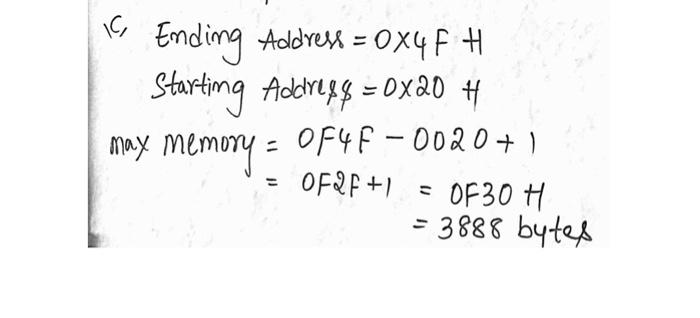 1C, Ending Address = 0X4F H
Starting Address = 0X20 H
max memory = 0F4F - 0020 + 1
= 0F2F + 1 = 0F30 H
= 3888 bytes